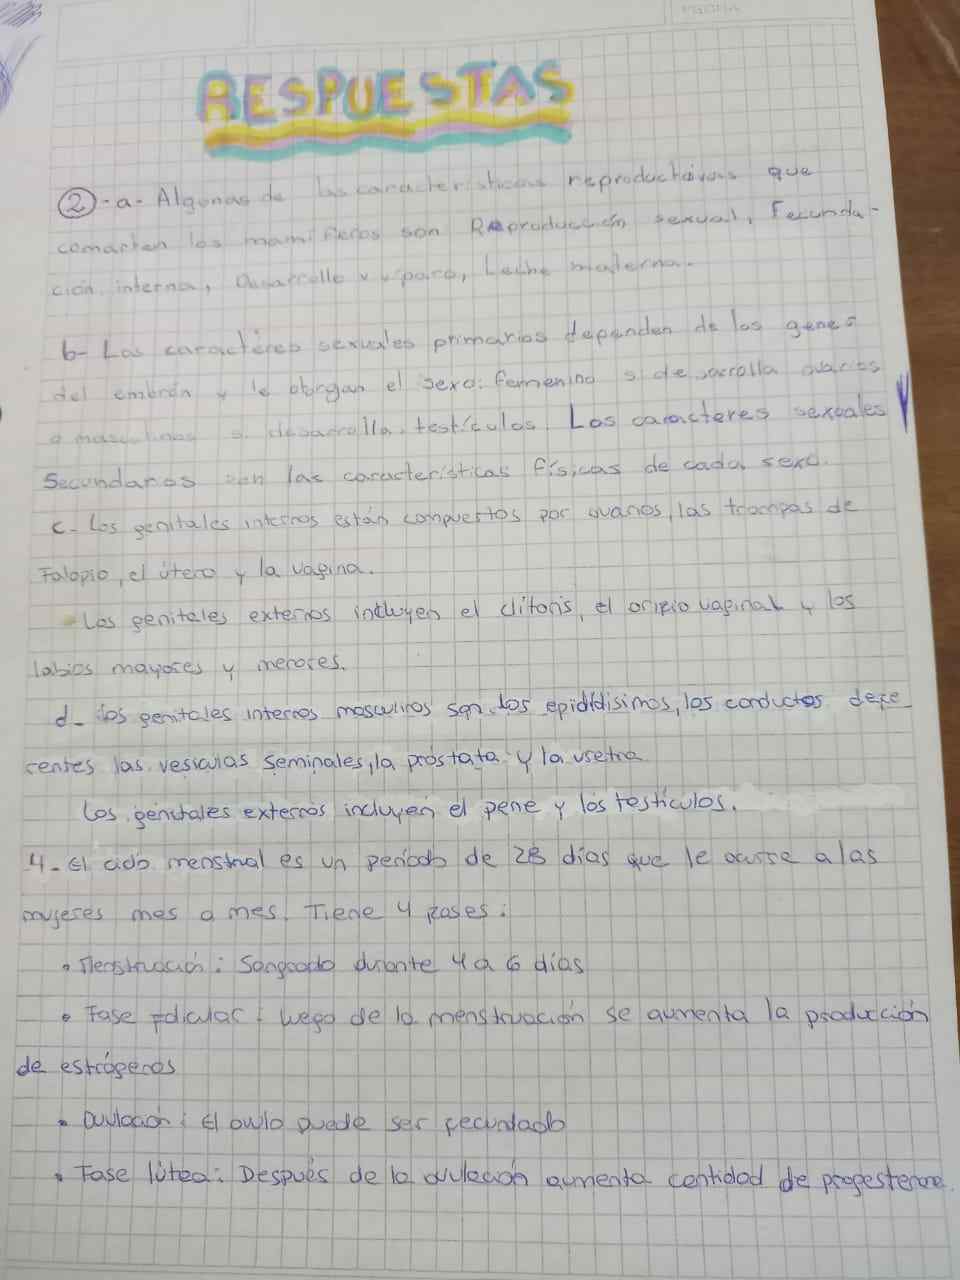 RESPUESTAS
2-a- Algunas de las características reproductivas que
comparten los mamíferos son Reproducción sexual, Fecunda-
ción interna, Desarrollo vivíparo, Leche materna.
b- Los caractéres sexuales primarios dependen de los genes
del embrión y le otorgan el sexo: femenino si desarrolla ovarios
o masculino si desarrolla testículos. Los caracteres sexuales
Secundarios son las características físicas de cada sexo.
c- Los genitales internos están compuestos por ovarios, las trompas de
Falopio, el útero y la vagina.
Los genitales externos incluyen el clítoris, el orificio vaginal y los
labios mayores y menores.
d- los genitales internos masculinos son los epidídisimos, los conductos defe
rentes las vesículas seminales, la próstata y la uretra
Los genitales externos incluyen el pene y los testículos.
4- El ciclo menstrual es un período de 28 días que le ocurre a las
mujeres mes a mes. Tiene 4 fases:
• Menstruación: Sangrado durante 4 a 6 días
• Fase folicular: Luego de la menstruación se aumenta la producción
de estrógenos
• Ovulación: El ovulo puede ser fecundado
• Fase lútea: Después de la ovulación aumenta cantidad de progesterona.